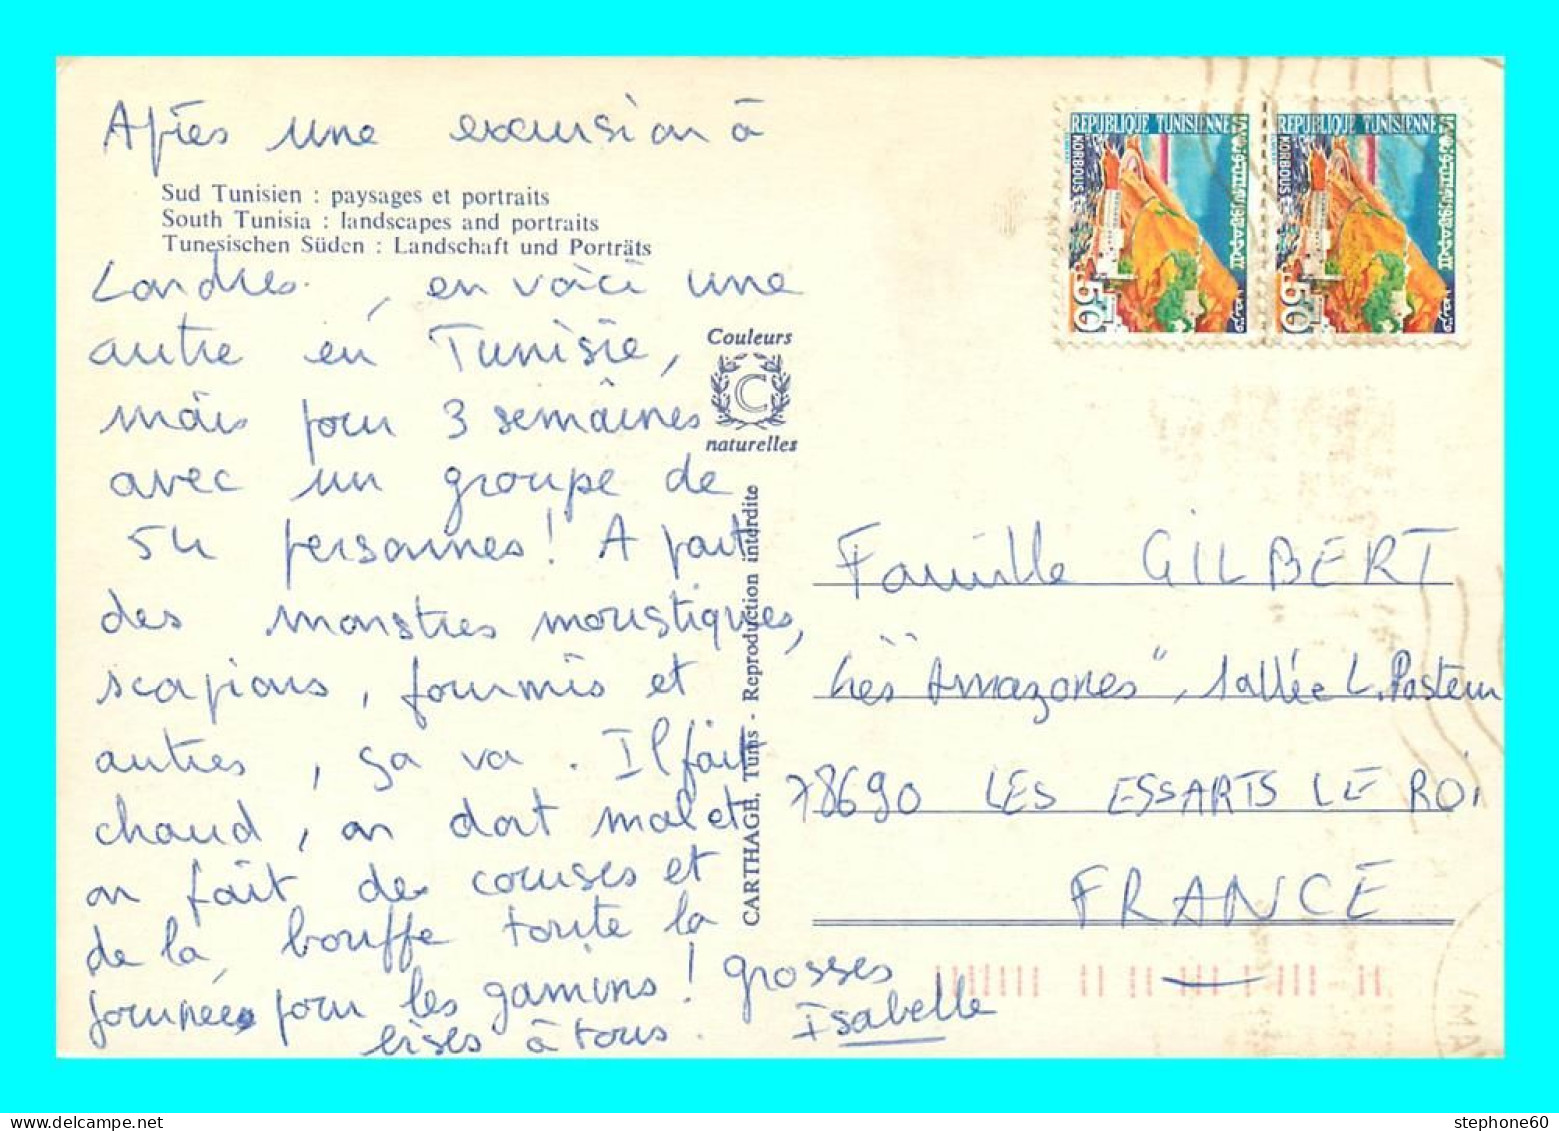 Après une excursion à
Sud Tunisien : paysages et portraits
South Tunisia : landscapes and portraits
Tunesischen Süden : Landschaft und Porträts
Londres, en voici une
autre en Tunisie,
mais pour 3 semaines
avec un groupe de
54 personnes ! A part
des monstres moustiques,
scorpions, fourmis et
autres, ça va. Il fait
chaud, on dort mal et
on fait des courses et
de la bouffe toute la
journée pour les gamins ! grosses
bises à tous. Isabelle
Couleurs
C
naturelles
CARTHAGE, Tunis - Reproduction interdite
REPUBLIQUE TUNISIENNE
KORBOUS
50
REPUBLIQUE TUNISIENNE
KORBOUS
50
Famille GILBERT
Les "Amazones", 1 allée L. Pasteur
78690 LES ESSARTS LE ROI
FRANCE
stephone60